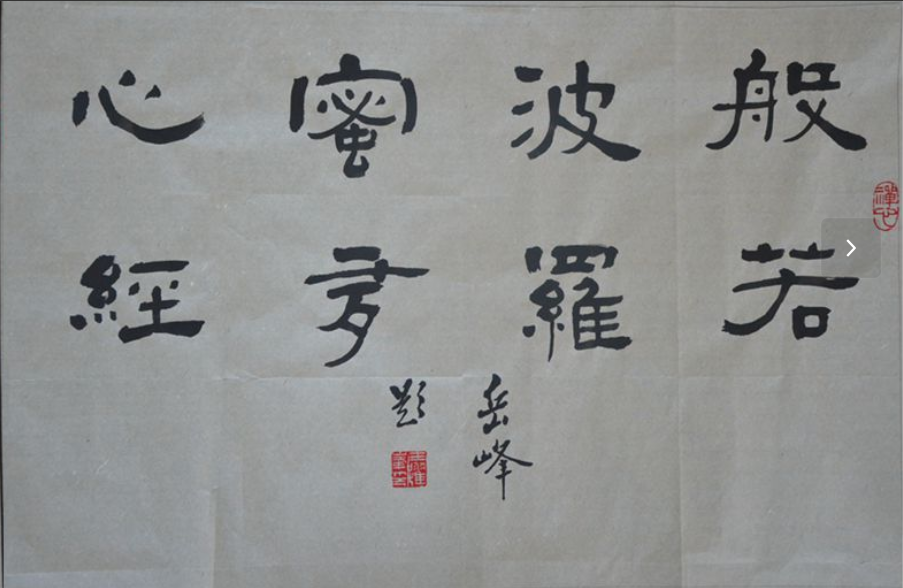 般若
波羅
蜜多
心經
岳峰
題
禪心